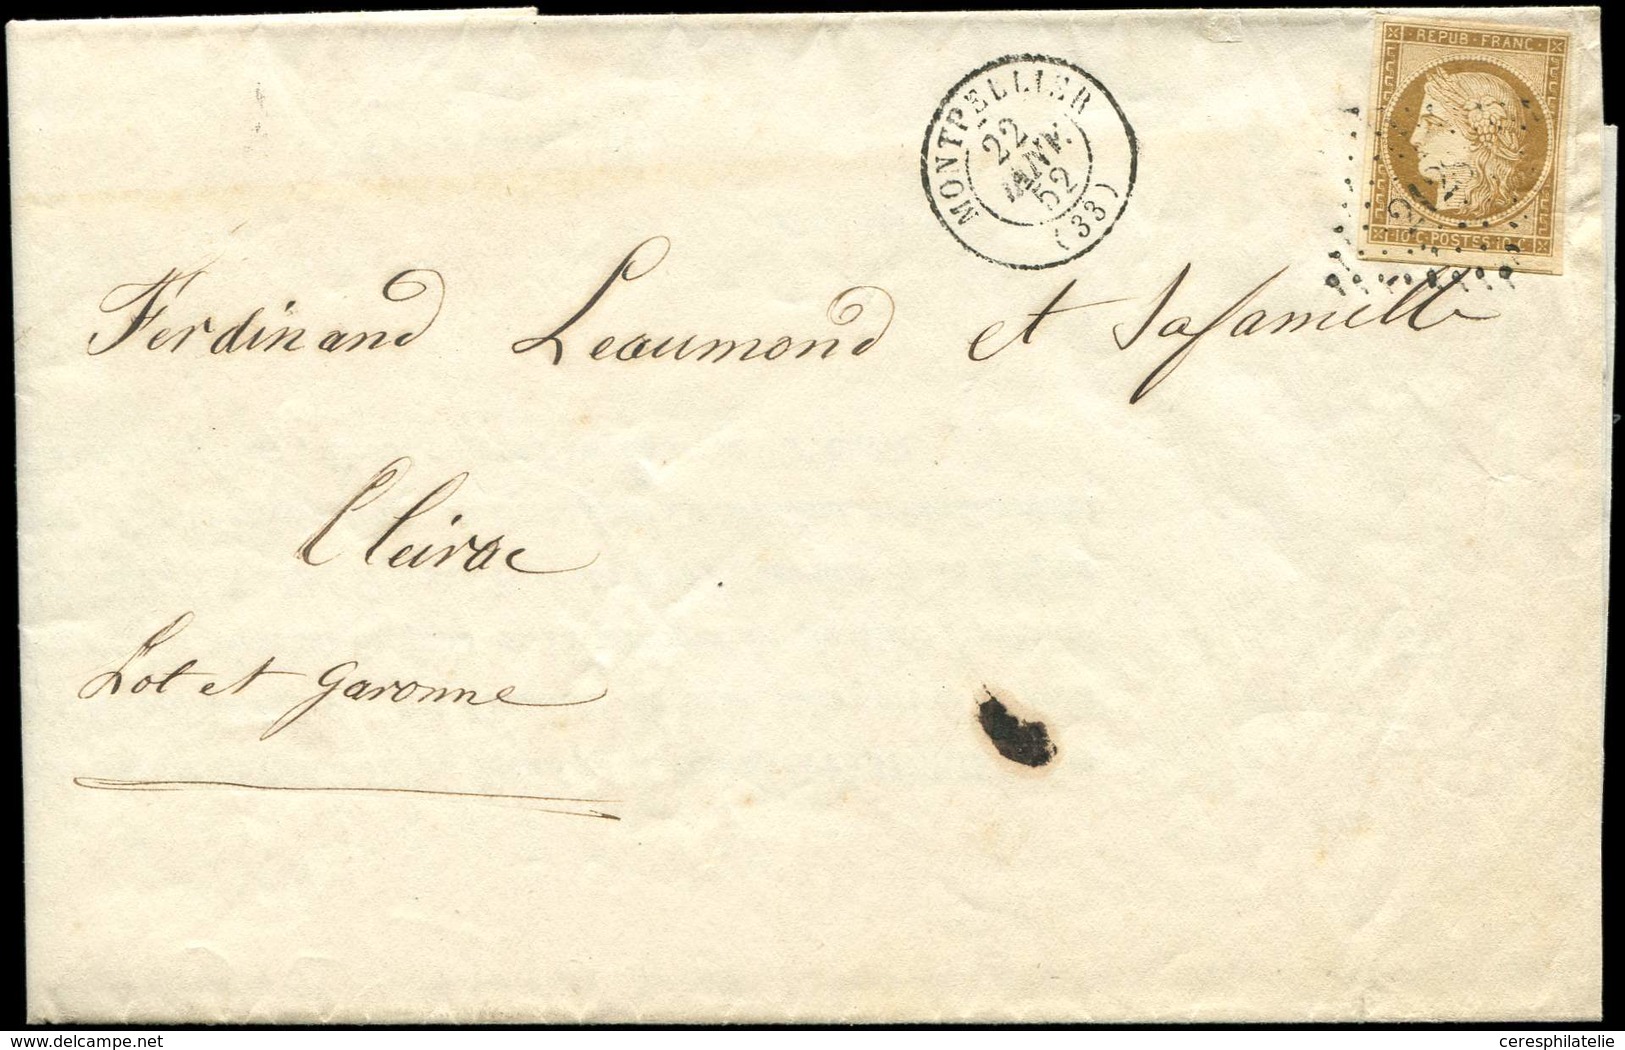 REPUB · FRANC ·
10 C · POSTES · 10 C
MONTPELLIER
22
JANV.
52
(33)
Ferdinand Leaumond et sa famille
Cleirac
Lot et Garonne
delcampe.net
ceresphilatelie